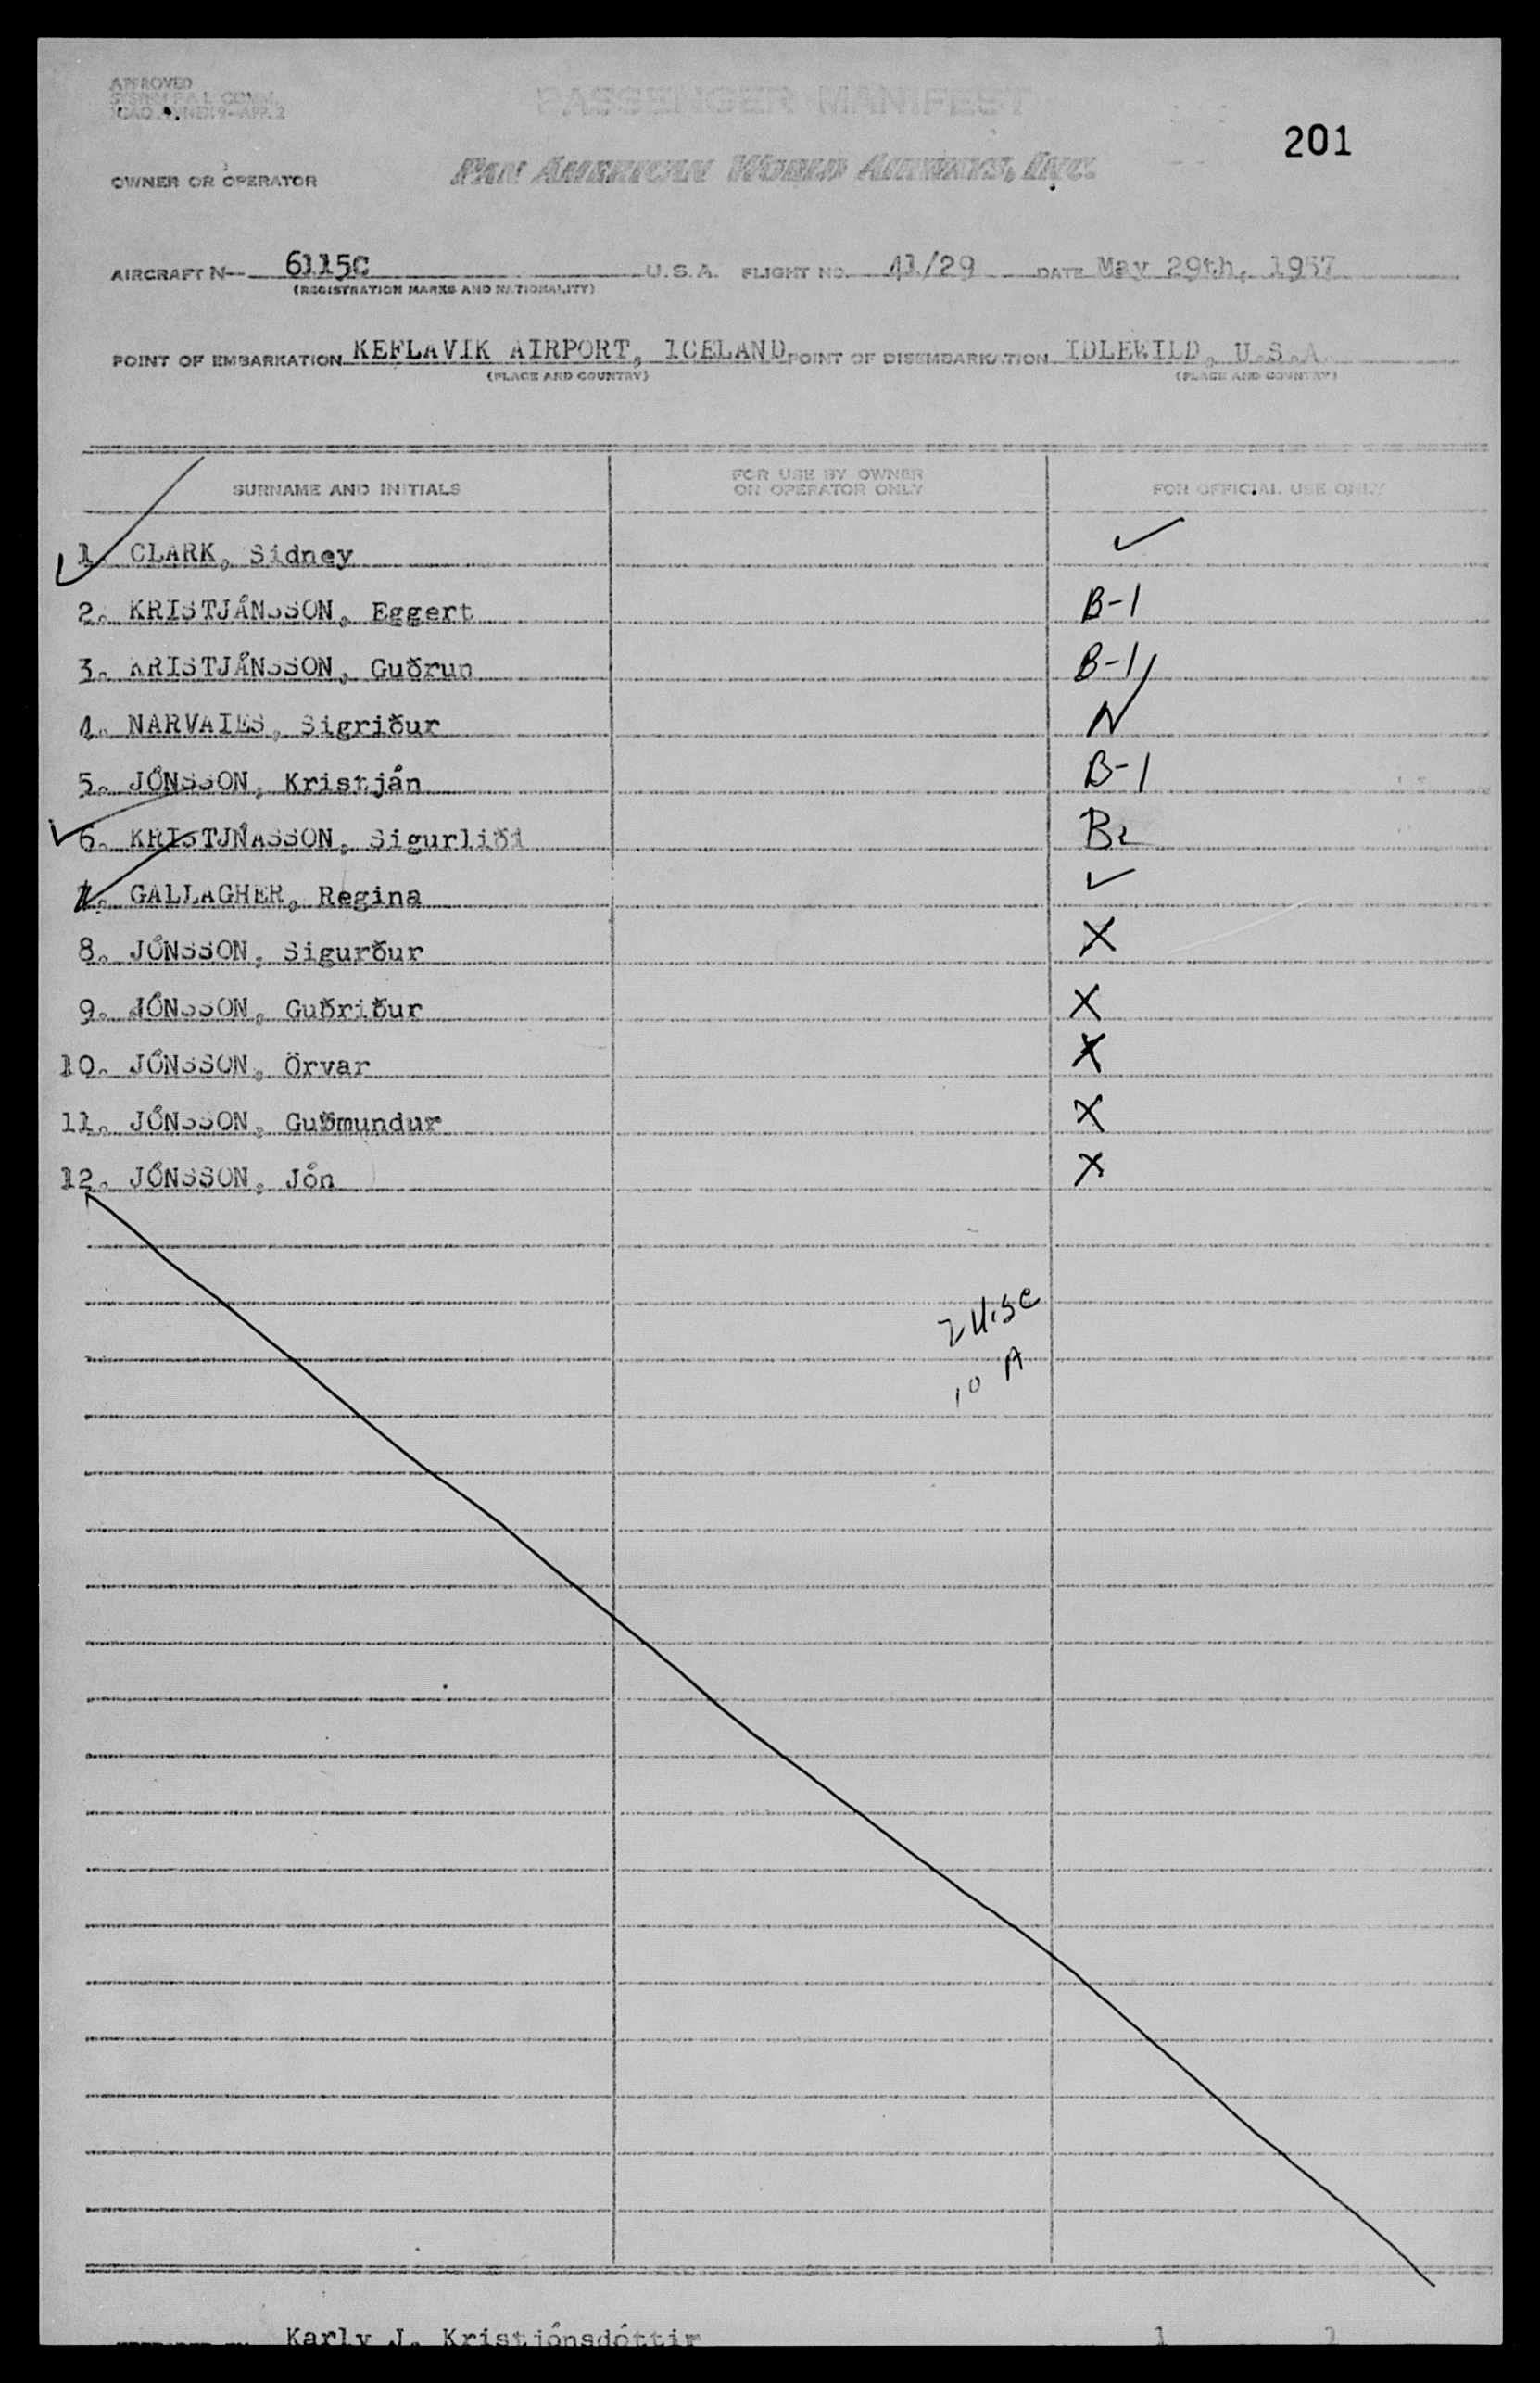 APPROVED
SYSTEM F.A.L. COMM.
ICAO ANNEX 9—APP. 2
PASSENGER MANIFEST
201
OWNER OR OPERATOR PAN AMERICAN WORLD AIRWAYS, INC.
AIRCRAFT N— 6115C U.S.A. FLIGHT NO. 41/29 DATE May 29th, 1957
(REGISTRATION MARKS AND NATIONALITY)
POINT OF EMBARKATION KEFLAVIK AIRPORT, ICELAND POINT OF DISEMBARKATION IDLEWILD, U.S.A.
(PLACE AND COUNTRY) (PLACE AND COUNTRY)
SURNAME AND INITIALS FOR USE BY OWNER OR OPERATOR ONLY FOR OFFICIAL USE ONLY
1. CLARK, Sidney ✓
2. KRISTJÁNSSON, Eggert B-1
3. KRISTJÁNSSON, Guðrun B-1
4. NARVAIES, Sigriður N
5. JÓNSSON, Kristján B-1
6. KRISTJNÁSSON, Sigurliði B2
7. GALLAGHER, Regina ✓
8. JÓNSSON, Sigurður X
9. JÓNSSON, Guðriður X
10. JÓNSSON, Örvar X
11. JÓNSSON, Guðmundur X
12. JÓNSSON, Jón X
2 USC
10 A
Karly J. Kristjónsdóttir 1 1